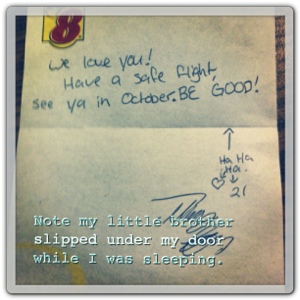 8
we love you!
Have a safe flight,
see ya in October. BE GOOD!
Ha Ha
Ha.
21
Note my little brother
slipped under my door
while I was sleeping.